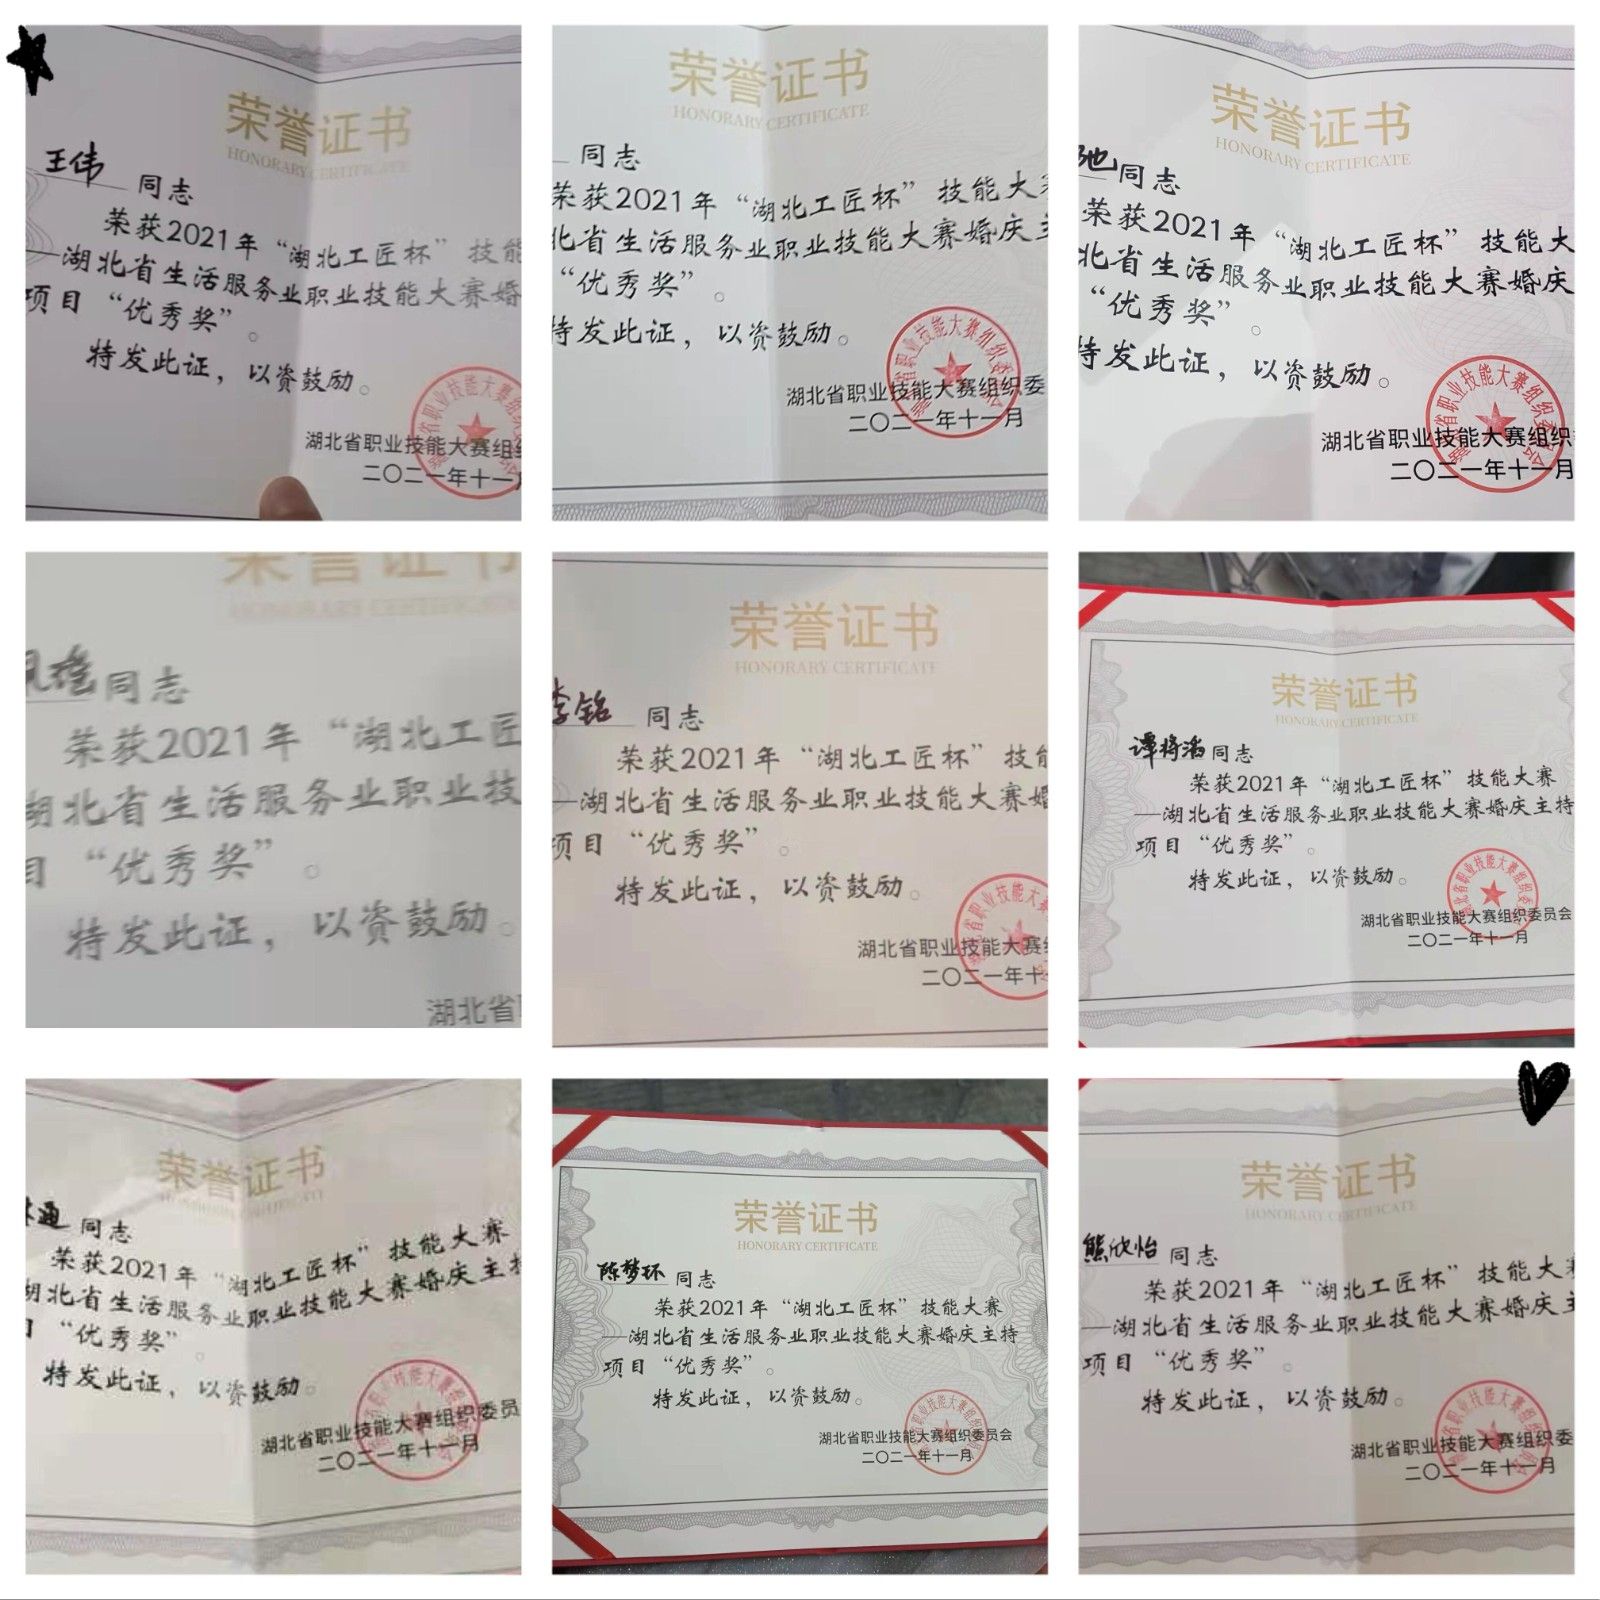 荣誉证书
HONORARY CERTIFICATE
王伟 同志
荣获2021年“湖北工匠杯”技能
—湖北省生活服务业职业技能大赛婚
项目“优秀奖”。
特发此证，以资鼓励。
湖北省职业技能大赛组
二〇二一年十一月
荣誉证书
HONORARY CERTIFICATE
同志
荣获2021年“湖北工匠杯”技能大
北省生活服务业职业技能大赛婚庆主
“优秀奖”。
特发此证，以资鼓励。
湖北省职业技能大赛组织委
二〇二一年十一月
荣誉证书
HONORARY CERTIFICATE
同志
荣获2021年“湖北工匠杯”技能大
北省生活服务业职业技能大赛婚庆
“优秀奖”。
特发此证，以资鼓励。
湖北省职业技能大赛组织
二〇二一年十一月
荣誉证书
HONORARY CERTIFICATE
雄同志
荣获2021年“湖北工匠
湖北省生活服务业职业技
目“优秀奖”。
特发此证，以资鼓励。
湖北省
荣誉证书
HONORARY CERTIFICATE
李铭 同志
荣获2021年“湖北工匠杯”技能
—湖北省生活服务业职业技能大赛婚
项目“优秀奖”。
特发此证，以资鼓励。
湖北省职业技能大赛
二〇二一年十
荣誉证书
HONORARY CERTIFICATE
谭将滔同志
荣获2021年“湖北工匠杯”技能大赛
—湖北省生活服务业职业技能大赛婚庆主持
项目“优秀奖”。
特发此证，以资鼓励。
湖北省职业技能大赛组织委员会
二〇二一年十一月
荣誉证书
通 同志
荣获2021年“湖北工匠杯”技能大赛
湖北省生活服务业职业技能大赛婚庆主持
目“优秀奖”。
特发此证，以资鼓励。
湖北省职业技能大赛组织委员
二〇二一年十一月
荣誉证书
HONORARY CERTIFICATE
陈梦环 同志
荣获2021年“湖北工匠杯”技能大赛
—湖北省生活服务业职业技能大赛婚庆主持
项目“优秀奖”。
特发此证，以资鼓励。
湖北省职业技能大赛组织委员会
二〇二一年十一月
荣誉证书
HONORARY CERTIFICATE
熊欣怡 同志
荣获2021年“湖北工匠杯”技能大
—湖北省生活服务业职业技能大赛婚庆主
项目“优秀奖”。
特发此证，以资鼓励。
湖北省职业技能大赛组织委
二〇二一年十一月